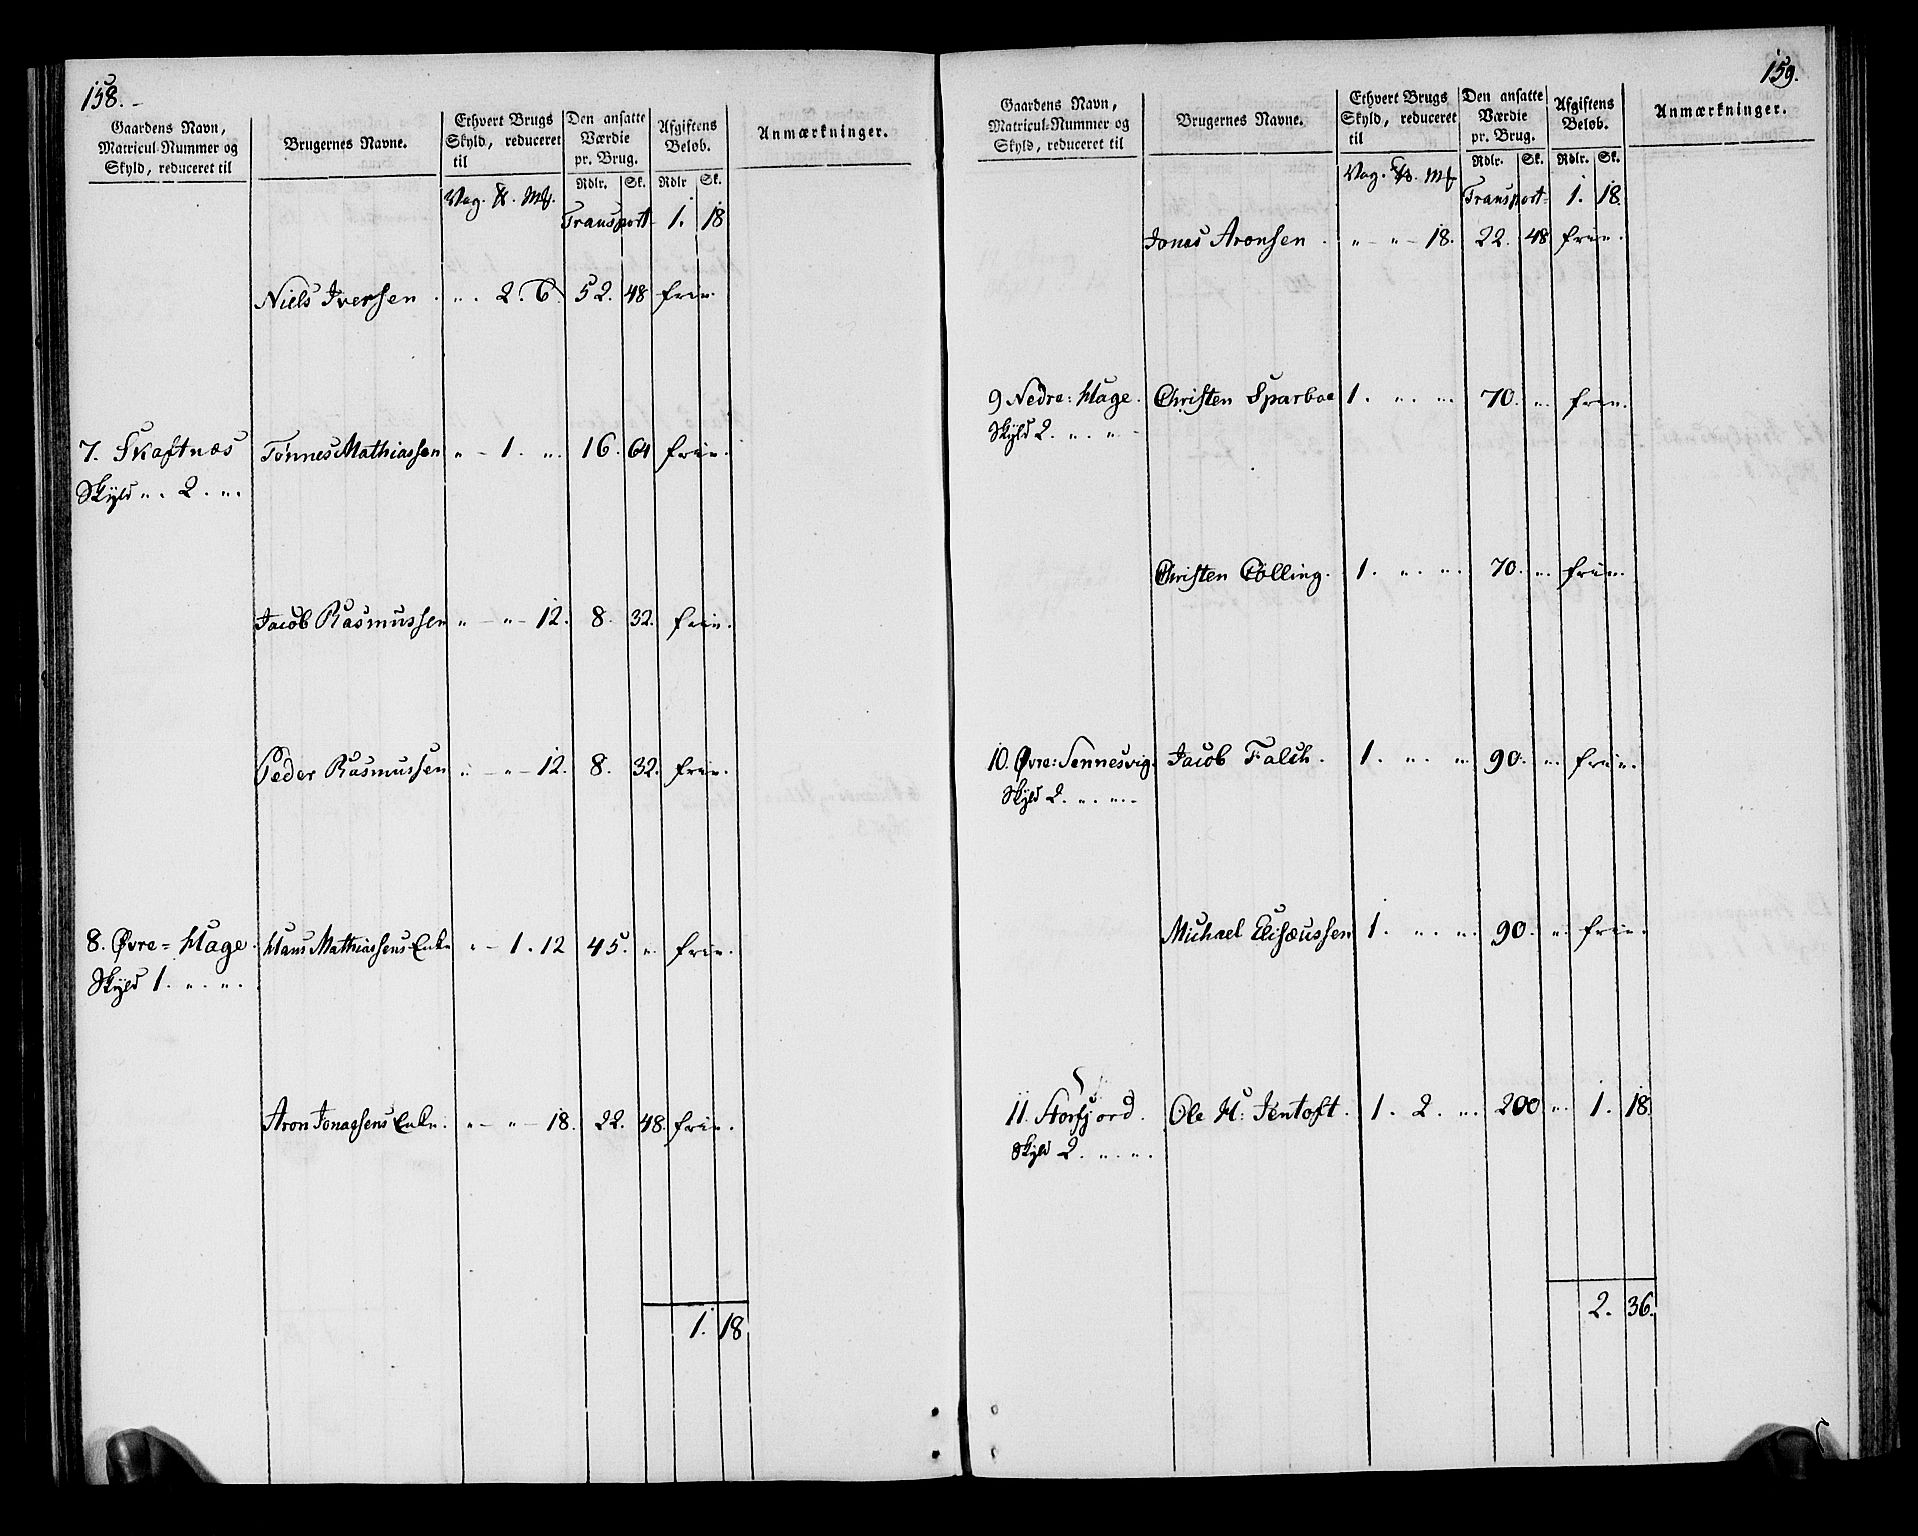 158.
Gaardens Navn, Matricul-Nummer og Skyld, reduceret til | Brugernes Navne. | Ethvert Brugs Skyld, reduceret til | Den ansatte Værdie pr. Brug. | Afgiftens Beløb. | Anmærkninger.
Vog. ℔. Mk. | Rdlr. Sk. | Rdlr Sk.
Transport 1. 18
Niels Iversen . „ . 2. 6. 52. 48 frie.
7. Skaftnæs Tönnes Mathiassen „ - 1. „. 16. 64 frie.
Skyld „. 2. „.
Jacob Rasmussen „ - „ - 12. 8. 32. frie.
Peder Rasmussen „ - „ - 12. 8. 32. frie.
8. Øvre = Hage. Hans Mathiassens Enke „ - 1. 12 45. „. frie.
Skyld 1. „. „.
Aron Jonassens Enke. „ - „ - 18. 22. 48. frie.
1. 18
159.
Gaardens Navn, Matricul-Nummer og Skyld, reduceret til | Brugernes Navne. | Ethvert Brugs Skyld, reduceret til | Den ansatte Værdie pr. Brug. | Afgiftens Beløb. | Anmærkninger.
Vog. ℔. Mk | Rdlr. Sk. | Rdlr. Sk.
Transport 1. 18.
Jonas Aronsen . „ - „ - 18. 22. 48 frie.
9 Nedre: Hage. Christen Sparboe 1. „. „. 70. „. frie.
Skyld 2. „. „ -
Christen Cölling. 1. „. „. 70. „. frie.
10. Øvre: Sennesvig. Jacob Falch. 1. „. „ 90. „. frie.
Skyld 2. „. „. -
Michael Elisæussen 1. „. „. 90. „. frie.
11. Storfjord. Ole H: Jentoft. 1. 2. „. 200 „. 1. 18.
Skyld 2. „. „.
2. 36.